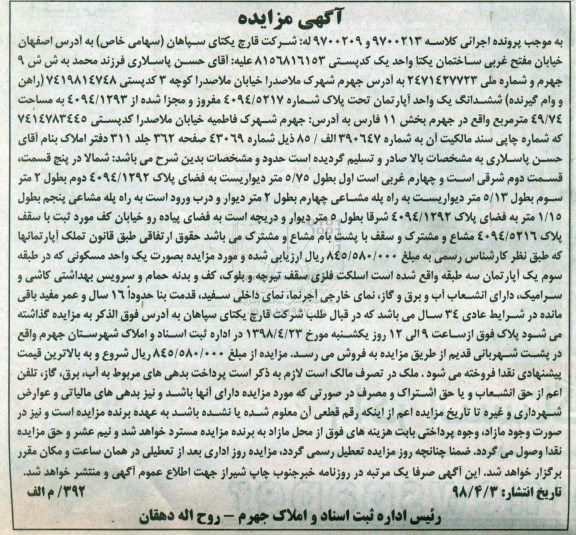 آگهی مزایده
به موجب پرونده اجرائی کلاسه ۹۷۰۰۲۱۳ و ۹۷۰۰۲۰۹ له: شرکت قارچ یکتای سپاهان (سهامی خاص) به آدرس اصفهان
خیابان مفتح غربی ساختمان یکتا واحد یک کدپستی ۸۱۵۶۸۱۶۱۵۳ علیه: آقای حسن پاسلاری فرزند محمد به ش ش ۹
جهرم و شماره ملی ۲۴۷۱۴۲۷۷۲۳ به آدرس جهرم شهرک ملاصدرا خیابان ملاصدرا کوچه ۳ کدپستی ۷۴۱۹۸۱۴۷۴۸ (راهن
و وام گیرنده) ششدانگ یک واحد آپارتمان تحت پلاک شماره ۴۰۹۴/۵۲۱۷ مفروز و مجزا شده از ۴۰۹۴/۱۲۹۳ به مساحت
۴۹/۷۴ مترمربع واقع در جهرم بخش ۱۱ فارس به آدرس: جهرم شهرک فاطمیه خیابان ملاصدرا کدپستی ۷۴۱۴۷۸۳۴۴۵
که شماره چاپی سند مالکیت آن به شماره ۳۹۰۶۴۷ الف / ۸۵ ذیل شماره ۴۳۰۶۹ صفحه ۳۶۲ جلد ۳۱۱ دفتر املاک بنام آقای
حسن پاسلاری به مشخصات بالا صادر و تسلیم گردیده است حدود و مشخصات بدین شرح می باشد: شمالا در پنج قسمت،
قسمت دوم شرقی است و چهارم غربی است اول بطول ۵/۷۵ متر دیواریست به فضای پلاک ۴۰۹۴/۱۲۹۲ دوم بطول ۲ متر
سوم بطول ۵/۱۳ متر دیواریست به راه پله مشاعی چهارم بطول ۲ متر دیوار و درب ورود است به راه پله مشاعی پنجم بطول
۱/۱۵ متر به فضای پلاک ۴۰۹۴/۱۲۹۲ شرقا بطول ۵ متر دیوار و دریچه است به فضای پیاده رو خیابان کف مورد ثبت با سقف
پلاک ۴۰۹۴/۵۲۱۶ مشاع و مشترک و سقف با پشت بام مشاع و مشترک می باشد حقوق ارتفاقی طبق قانون تملک آپارتمانها
که طبق نظر کارشناس رسمی به مبلغ ۸۴۵/۵۸۰/۰۰۰ ریال ارزیابی شده و مورد مزایده بصورت یک واحد مسکونی که در طبقه
سوم یک آپارتمان سه طبقه واقع شده است اسلکت فلزی سقف تیرچه و بلوک، کف و بدنه حمام و سرویس بهداشتی کاشی و
سرامیک، دارای انشعاب آب و برق و گاز، نمای خارجی آجرنما، نمای داخلی سفید، قدمت بنا حدوداً ۱۶ سال و عمر مفید باقی
مانده در شرایط عادی ۳۴ سال می باشد که در قبال طلب شرکت قارچ یکتای سپاهان به آدرس فوق الذکر به مزایده گذاشته
می شود پلاک فوق ازساعت ۹ الی ۱۲ روز یکشنبه مورخ ۱۳۹۸/۴/۲۳ در اداره ثبت اسناد و املاک شهرستان جهرم واقع
در پشت شهربانی قدیم از طریق مزایده به فروش می رسد. مزایده از مبلغ ۸۴۵/۵۸۰/۰۰۰ ریال شروع و به بالاترین قیمت
پیشنهادی نقدا فروخته می شود . ملک در تصرف مالک است لازم به ذکر است پرداخت بدهی های مربوط به آب، برق، گاز، تلفن
اعم از حق انشعاب و یا حق اشتراک و مصرف در صورتی که مورد مزایده دارای آنها باشد و نیز بدهی های مالیاتی و عوارض
شهرداری و غیره تا تاریخ مزایده اعم از اینکه رقم قطعی آن معلوم شده یا نشده باشد به عهده برنده مزایده است و نیز در
صورت وجود مازاد، وجوه پرداختی بابت هزینه های فوق از محل مازاد به برنده مزایده مسترد خواهد شد و نیم عشر و حق مزایده
نقدا وصول می گردد. ضمنا چنانچه روز مزایده تعطیل رسمی گردد، مزایده روز اداری بعد از تعطیلی در همان ساعت و مکان مقرر
برگزار خواهد شد. این آگهی صرفا یک مرتبه در روزنامه خبرجنوب چاپ شیراز جهت اطلاع عموم آگهی و منتشر خواهد شد.
تاریخ انتشار: ۹۸/۴/۳ ۳۹۲/ م الف
رئیس اداره ثبت اسناد و املاک جهرم – روح اله دهقان